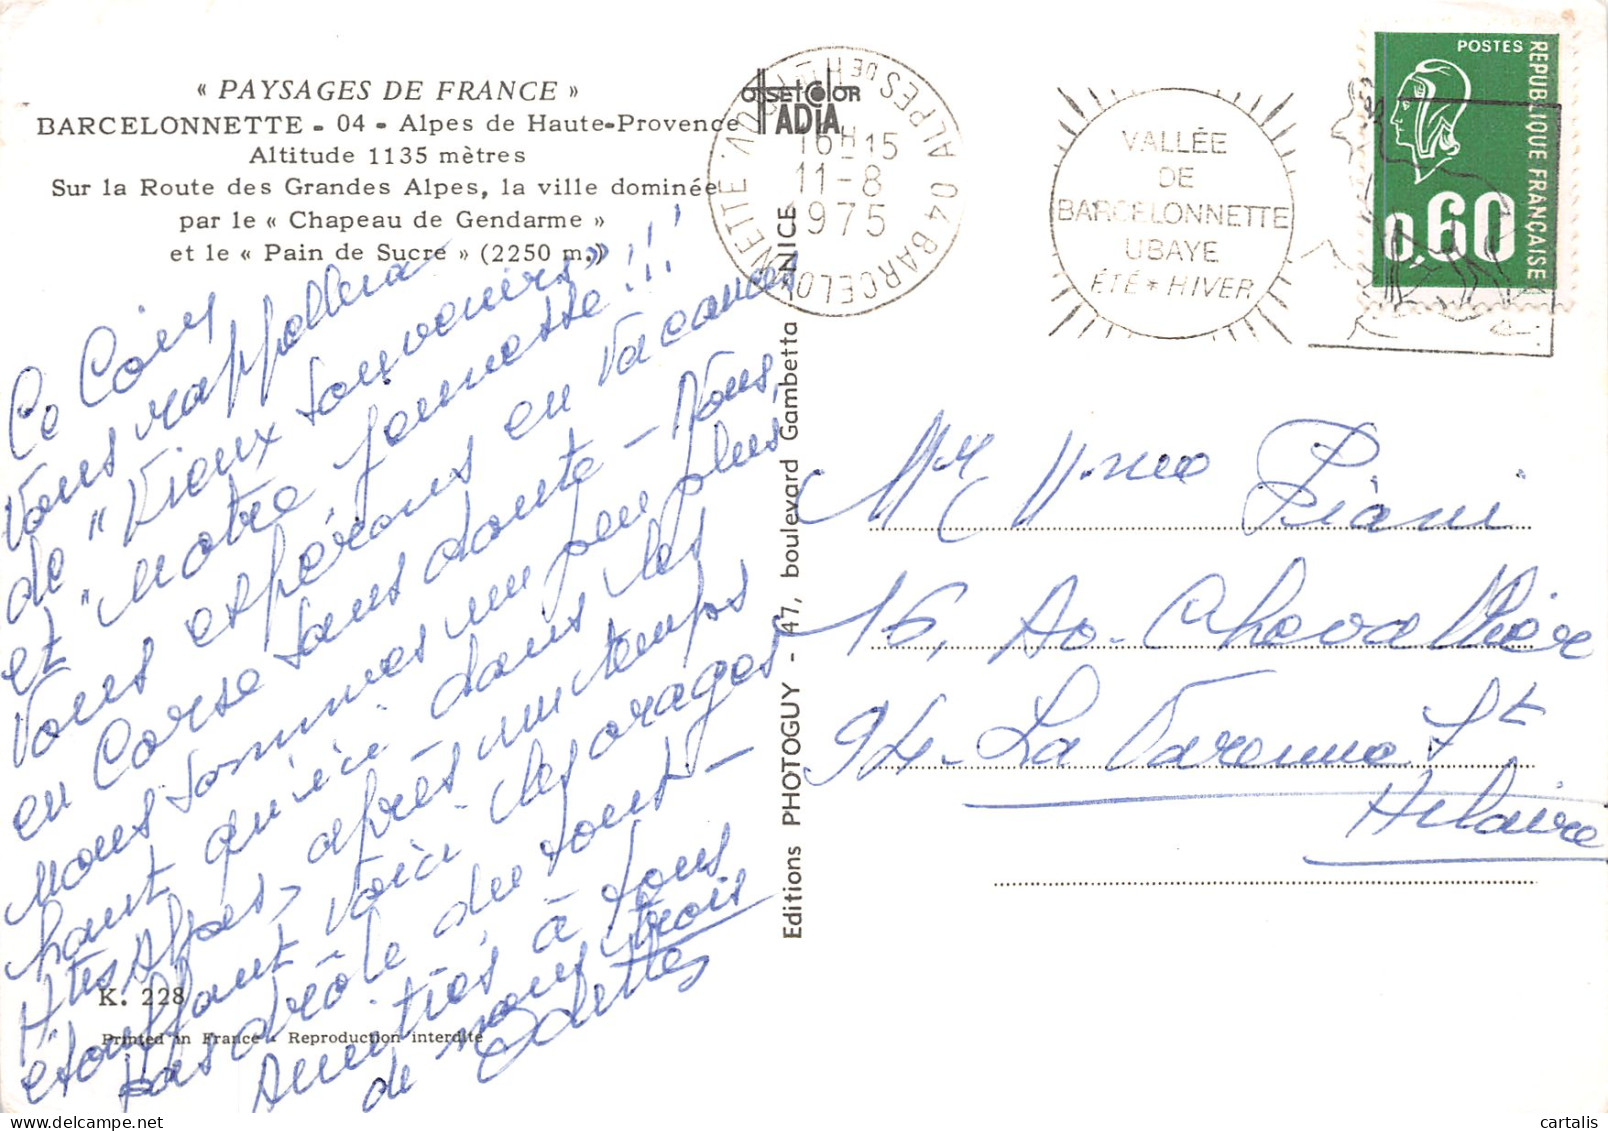 « PAYSAGES DE FRANCE »
BARCELONNETTE - 04 - Alpes de Haute-Provence
Altitude 1135 mètres
Sur la Route des Grandes Alpes, la ville dominée
par le « Chapeau de Gendarme »
et le « Pain de Sucre » (2250 m.)
Ce Coin
Vous rappellera
de "Vieux Souvenirs"
et "Notre jeunesse!!!
Vous espérons en Vacances
en Corse sans doute - Nous,
nous sommes un peu plus
haut qu'ici dans les
Htes Alpes, après un temps
étouffant voici les orages
pas drôle du tout -
Amitiés à tous
de nous trois
Odettes
K. 228
Printed in France - Reproduction interdite
Editions PHOTOGUY - 47, boulevard Gambetta NICE
offsetcolor
ADIA
04 BARCELONNETTE
ALPES DE HTE PROV.
16H15
11-8
1975
VALLÉE
DE
BARCELONNETTE
UBAYE
ÉTÉ * HIVER
POSTES
REPUBLIQUE FRANÇAISE
0,60
Mr Mme Piani
16, Av. Chevallière
94 - La Varenne St
Hilaire
cartalis